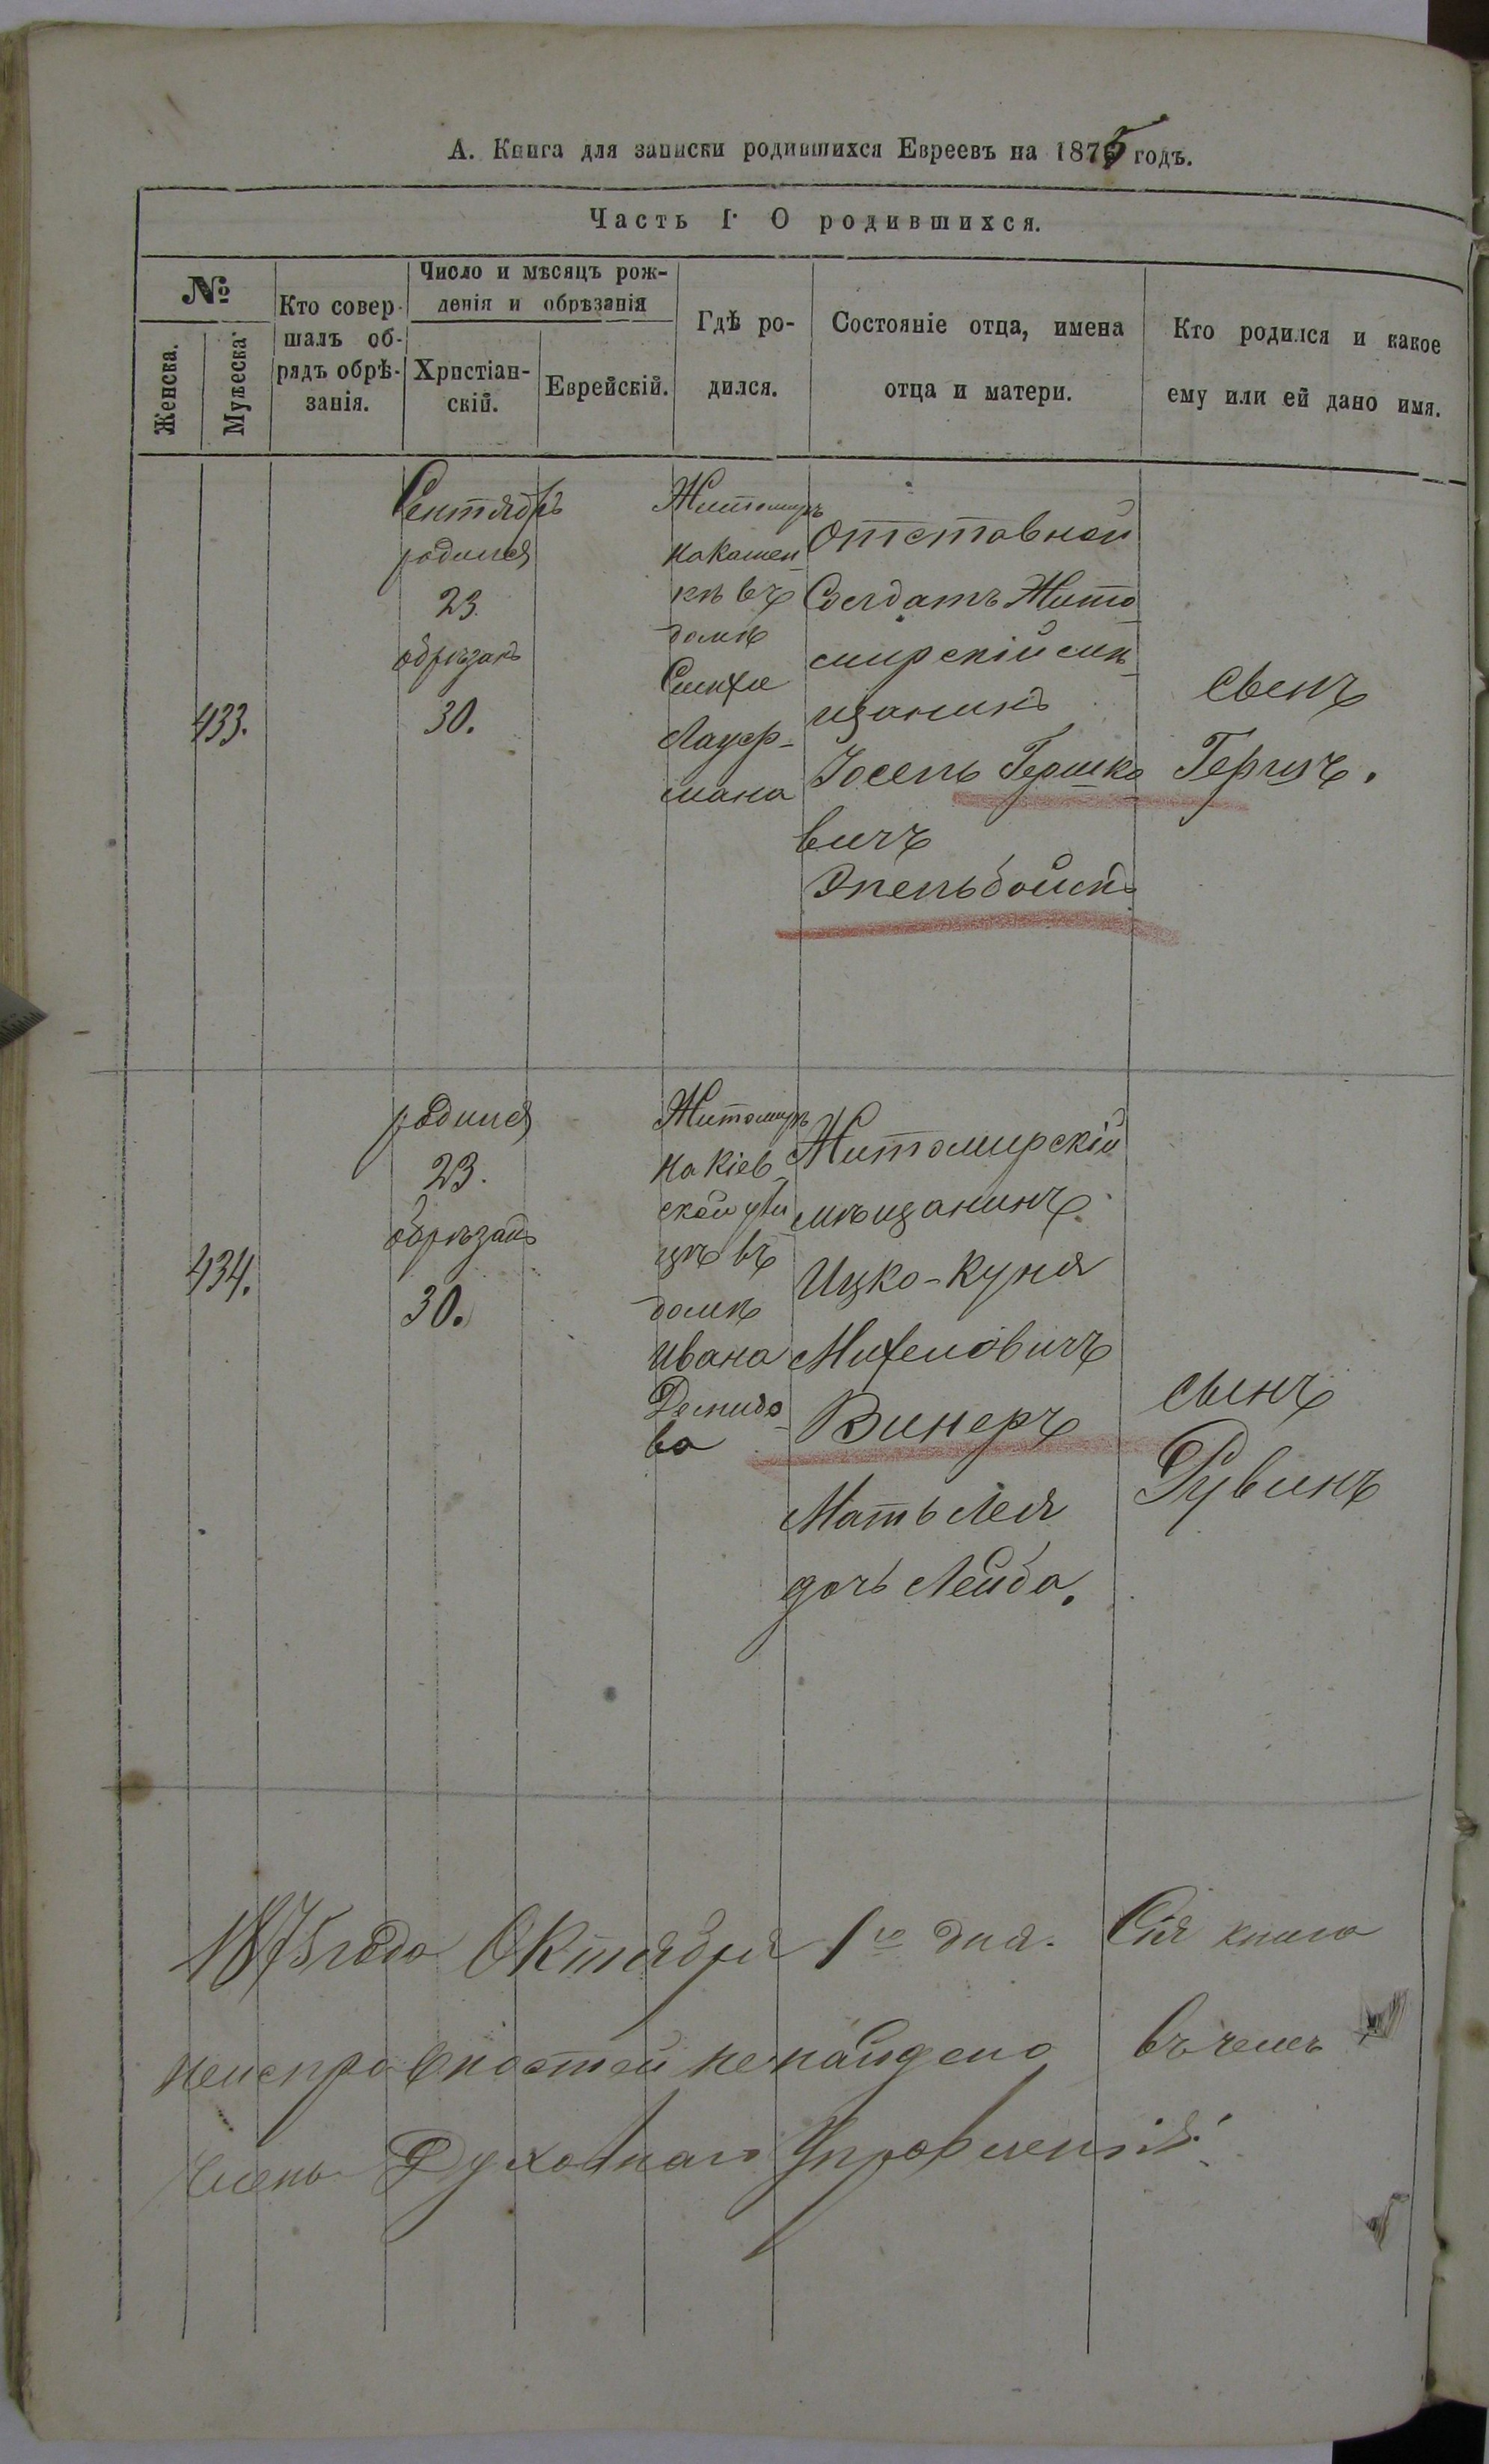 А. Книга для записки родившихся Евреевъ на 1875 годъ.
Часть I. О родившихся.
№
Женска.
Мужеска
Кто совер-
шалъ об-
рядъ обрѣ-
занія.
Число и мѣсяцъ рож-
денія и обрѣзанія
Христіан-
скій.
Еврейскій.
Гдѣ ро-
дился.
Состояніе отца, имена
отца и матери.
Кто родился и какое
ему или ей дано имя.
433.
Сентябрь
родился
23.
обрѣзанъ
30.
Житомиръ
на
въ
домѣ
мана
Отставной
Солдатъ Жито
мирскій мѣ
щанинъ
Іосепъ Гершко
вичъ
Сынъ
Герцъ.
434.
родился
23.
обрѣзанъ
30.
Житомиръ
на Кіев
ской ули
цѣ въ
домѣ
Ивана
Демидо
ва
Житомирскій
мѣщанинъ
Ицко-Куня
Михелiовичъ
Винеръ
Мать Лея
дочь Лейба.
сынъ
Рувинъ
1875 года Октября 1го дня. Сія книга
неисправностей не найдено въ чемъ
Членъ Духовнаго Правленія